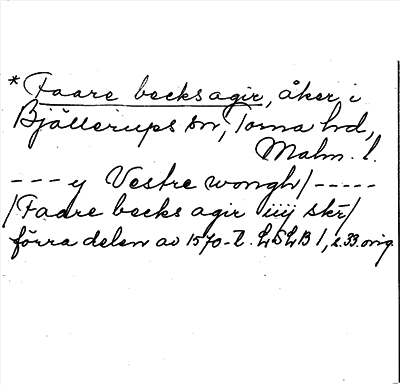 * Faare becksagir, åker i
Bjällerups sn, Torna hrd,
Malm. l.
--- y Vestre wongh/-----
/Faare becks agir iiij skr/
förra delen av 1570-t. LSLB 1, s. 33. orig.